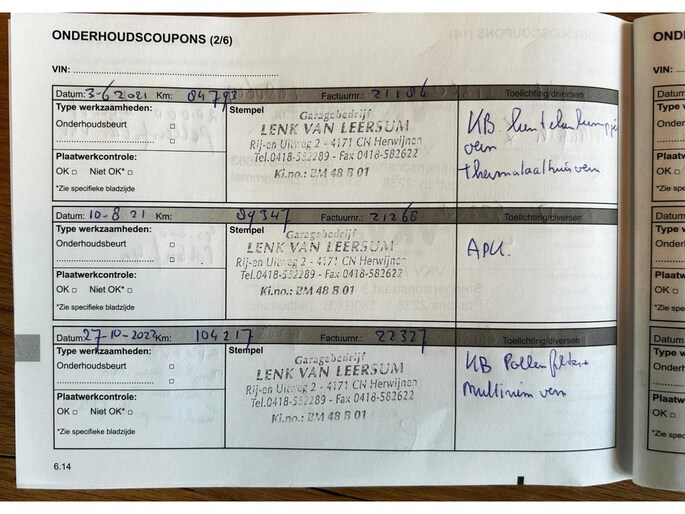 ONDERHOUDSCOUPONS (2/6)
VIN:
Datum: 3-6 2021 Km: 84793 Factuurnr.: 21184 Toelichting/diversen
Type werkzaamheden:
Onderhoudsbeurt
Plaatwerkcontrole:
OK Niet OK*
*Zie specifieke bladzijde
Stempel
Garagebedrijf
LENK VAN LEERSUM
Rij-en Uitweg 2 - 4171 CN Herwijnen
Tel.0418-582289 - Fax 0418-582622
Ki.no.: BM 48 B 01
KB
vern
thermostaathuis vern
Datum: 10-8 21 Km: 89347 Factuurnr.: 21268 Toelichting/diversen
Type werkzaamheden:
Onderhoudsbeurt
Plaatwerkcontrole:
OK Niet OK*
*Zie specifieke bladzijde
Stempel
Garagebedrijf
LENK VAN LEERSUM
Rij-en Uitweg 2 - 4171 CN Herwijnen
Tel.0418-582289 - Fax 0418-582622
Ki.no.: BM 48 B 01
APK.
Datum: 27-10-2022 Km: 104217 Factuurnr.: 22327 Toelichting/diversen
Type werkzaamheden:
Onderhoudsbeurt
Plaatwerkcontrole:
OK Niet OK*
*Zie specifieke bladzijde
Stempel
Garagebedrijf
LENK VAN LEERSUM
Rij-en Uitweg 2 - 4171 CN Herwijnen
Tel.0418-582289 - Fax 0418-582622
Ki.no.: BM 48 B 01
KB Pollenfilter +
Multiriem vern
6.14
OND
VIN:
Datum:
Type w
Onderh
Plaatw
OK
*Zie spec
Datum:
Type w
Onderh
Plaatw
OK
*Zie spec
Datum:
Type w
Onderh
Plaatw
OK
*Zie spec